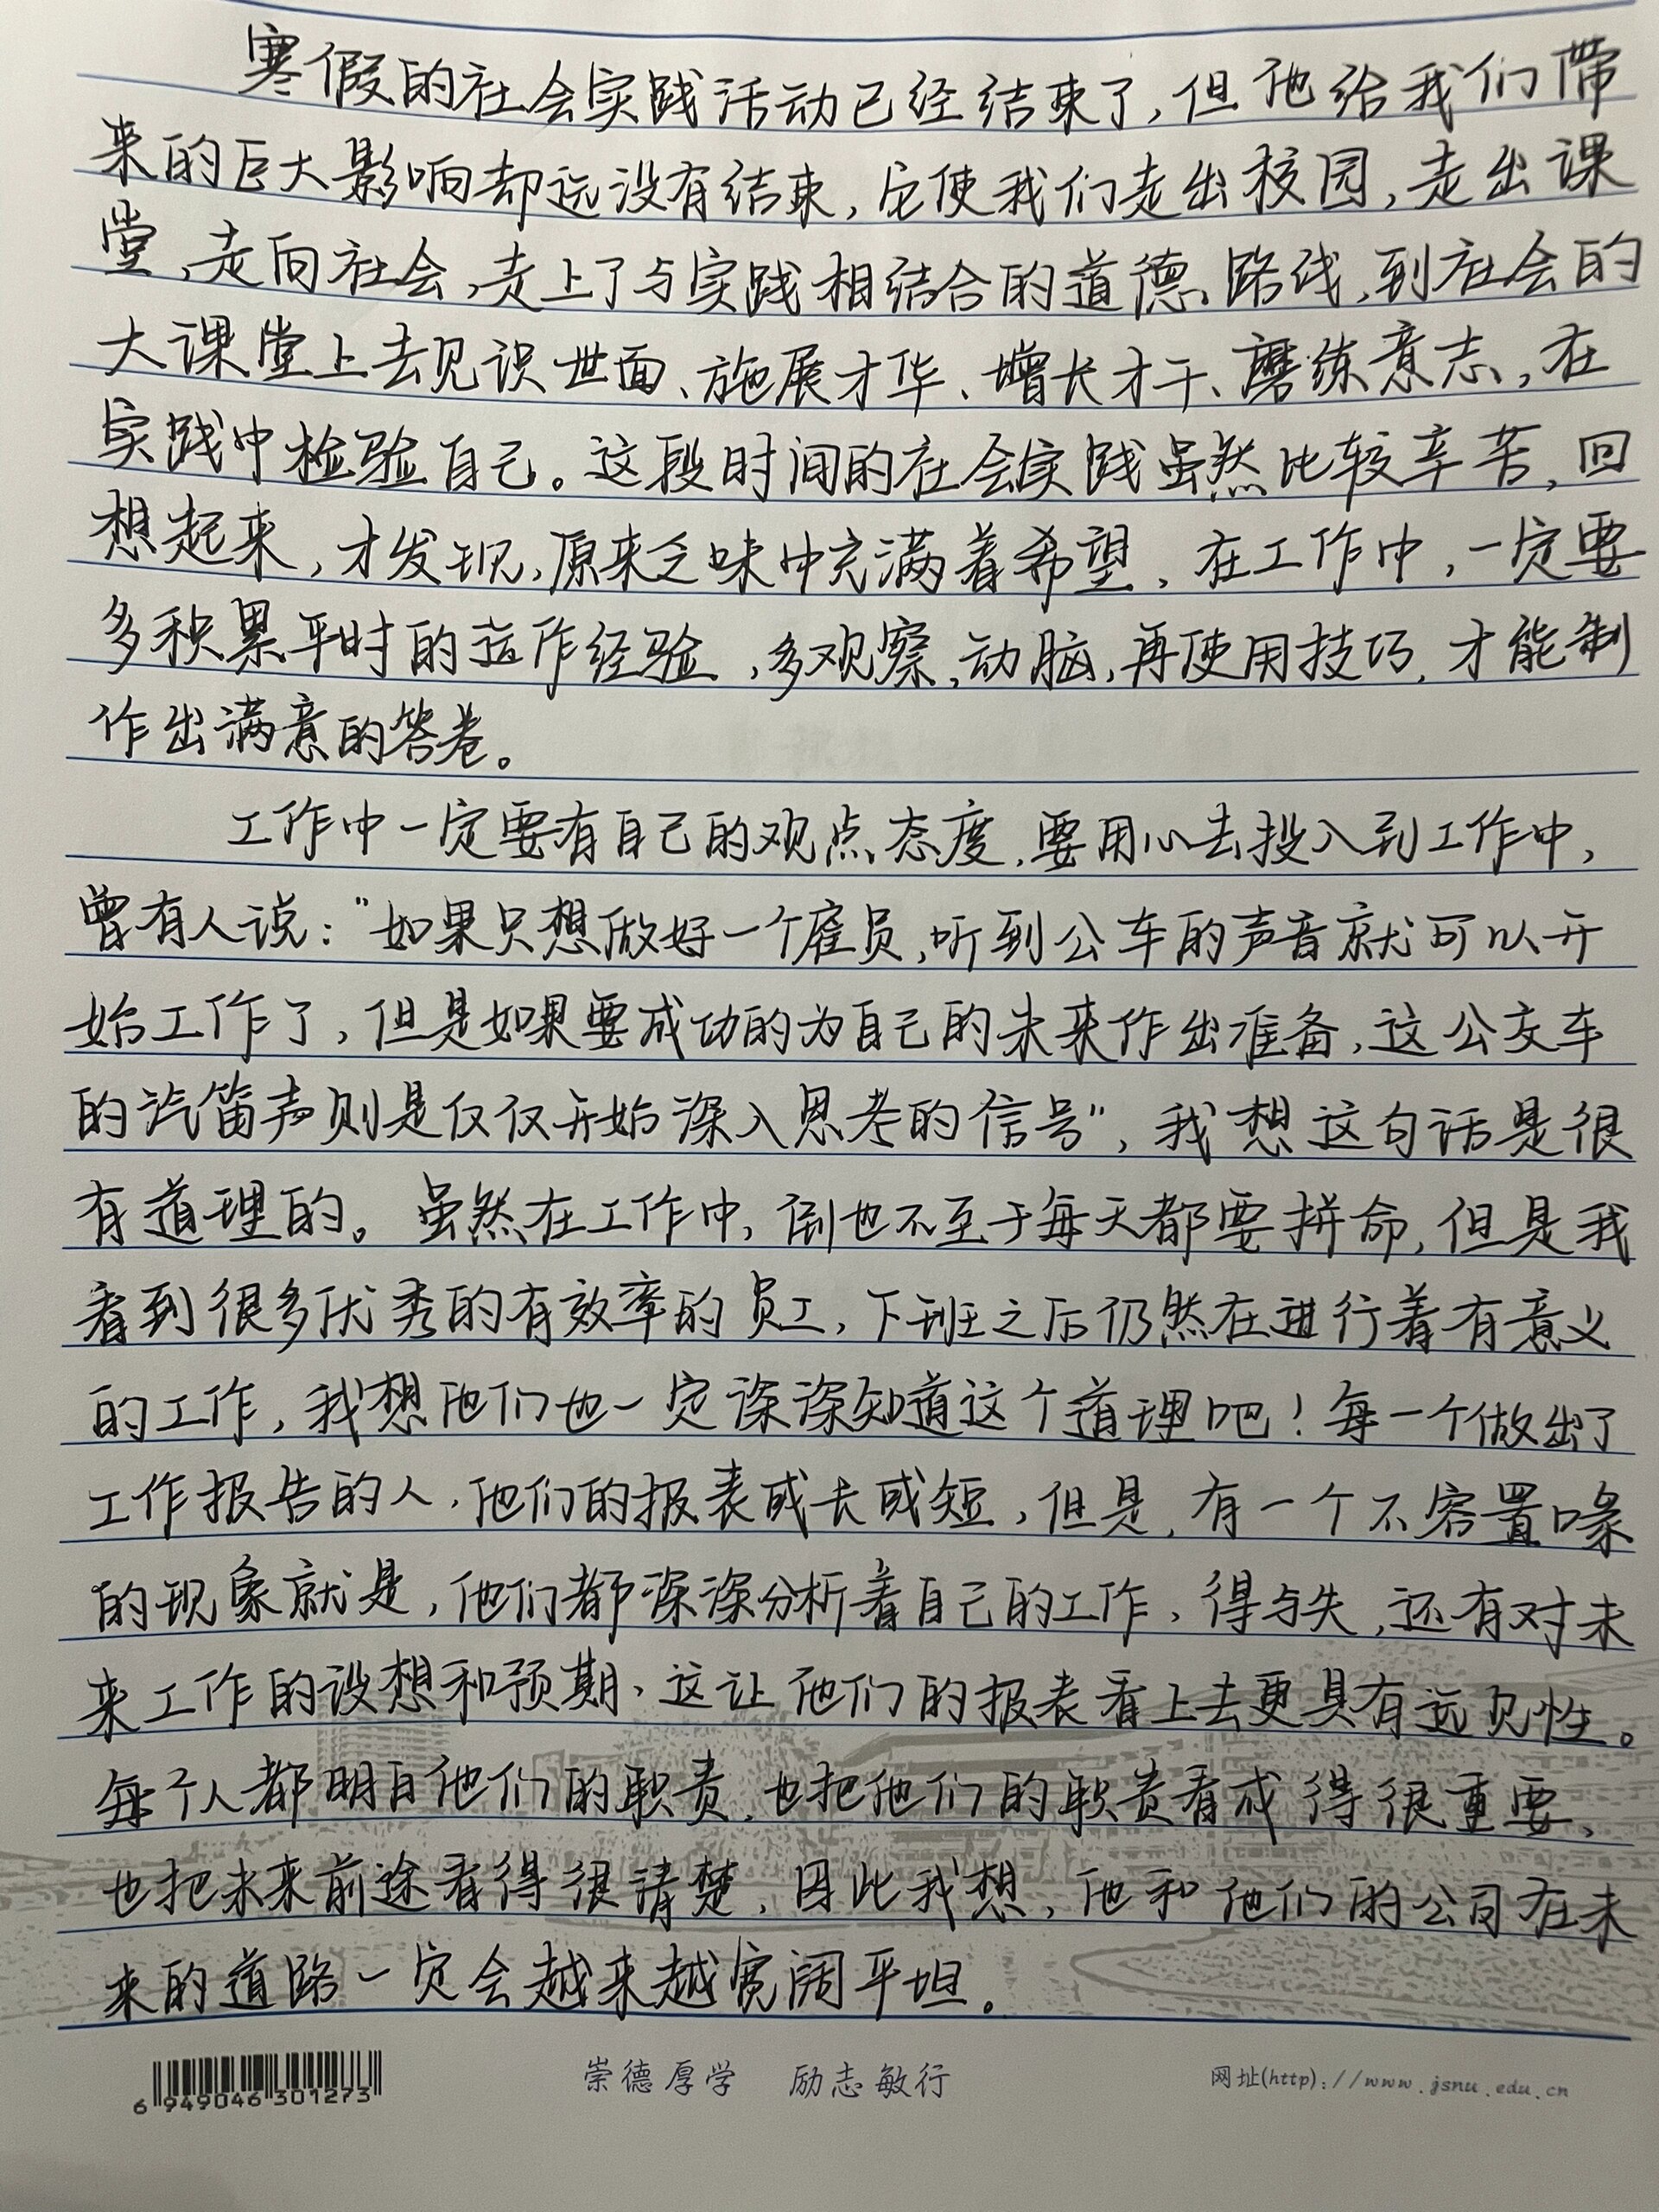 寒假的社会实践活动已经结束了,但他给我们带
来的巨大影响却远没有结束,它使我们走出校园,走出课
堂,走向社会,走上了与实践相结合的道德、路线,到社会的
大课堂上去见识世面、施展才华、增长才干、磨练意志,在
实践中检验自己。这段时间的社会实践虽然比较辛苦,回
想起来,才发现,原来乏味中充满着希望,在工作中,一定要
多积累平时的运作经验,多观察,动脑,再使用技巧,才能制
作出满意的答卷。
工作中一定要有自己的观点态度,要用心去投入到工作中,
曾有人说:"如果只想做好一个雇员,听到公车的声音就可以开
始工作了,但是如果要成功的为自己的未来作出准备,这公交车
的汽笛声则是仅仅开始深入思考的信号",我想这句话是很
有道理的。虽然在工作中,倒也不至于每天都要拼命,但是我
看到很多优秀的有效率的员工,下班之后仍然在进行着有意义
的工作,我想他们也一定深深知道这个道理吧!每一个做出了
工作报告的人,他们的报表或长或短,但是,有一个不容置喙
的现象就是,他们都深深分析着自己的工作,得与失,还有对未
来工作的设想和预期、这让他们的报表看上去更具有远见性。
每个人都明白他们的职责,也把他们的职责看成得很重要,
也把未来前途看得很清楚,因此我想,他和他们的公司在未
来的道路一定会越来越宽阔平坦。
6 949046 301273
崇德厚学 励志敏行
网址(http)://www.jsnu.edu.cn